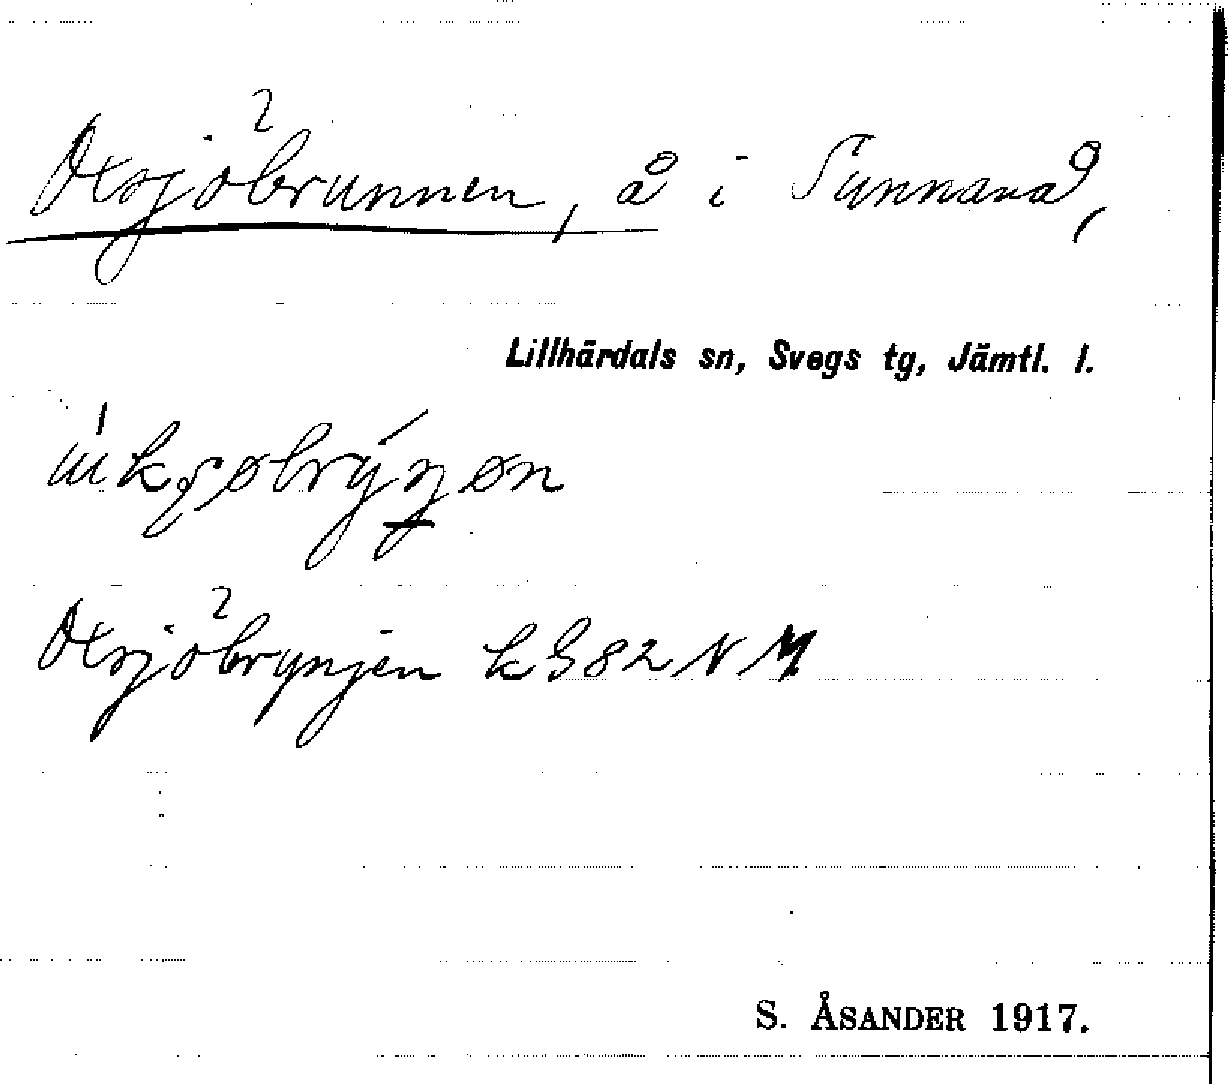 Oxsjöbrunnen, å i Sunnanå,
Lillhärdals sn, Svegs tg, Jämtl. l.
Oxsjöbrynjen k G 82 N M
S. ÅSANDER 1917.